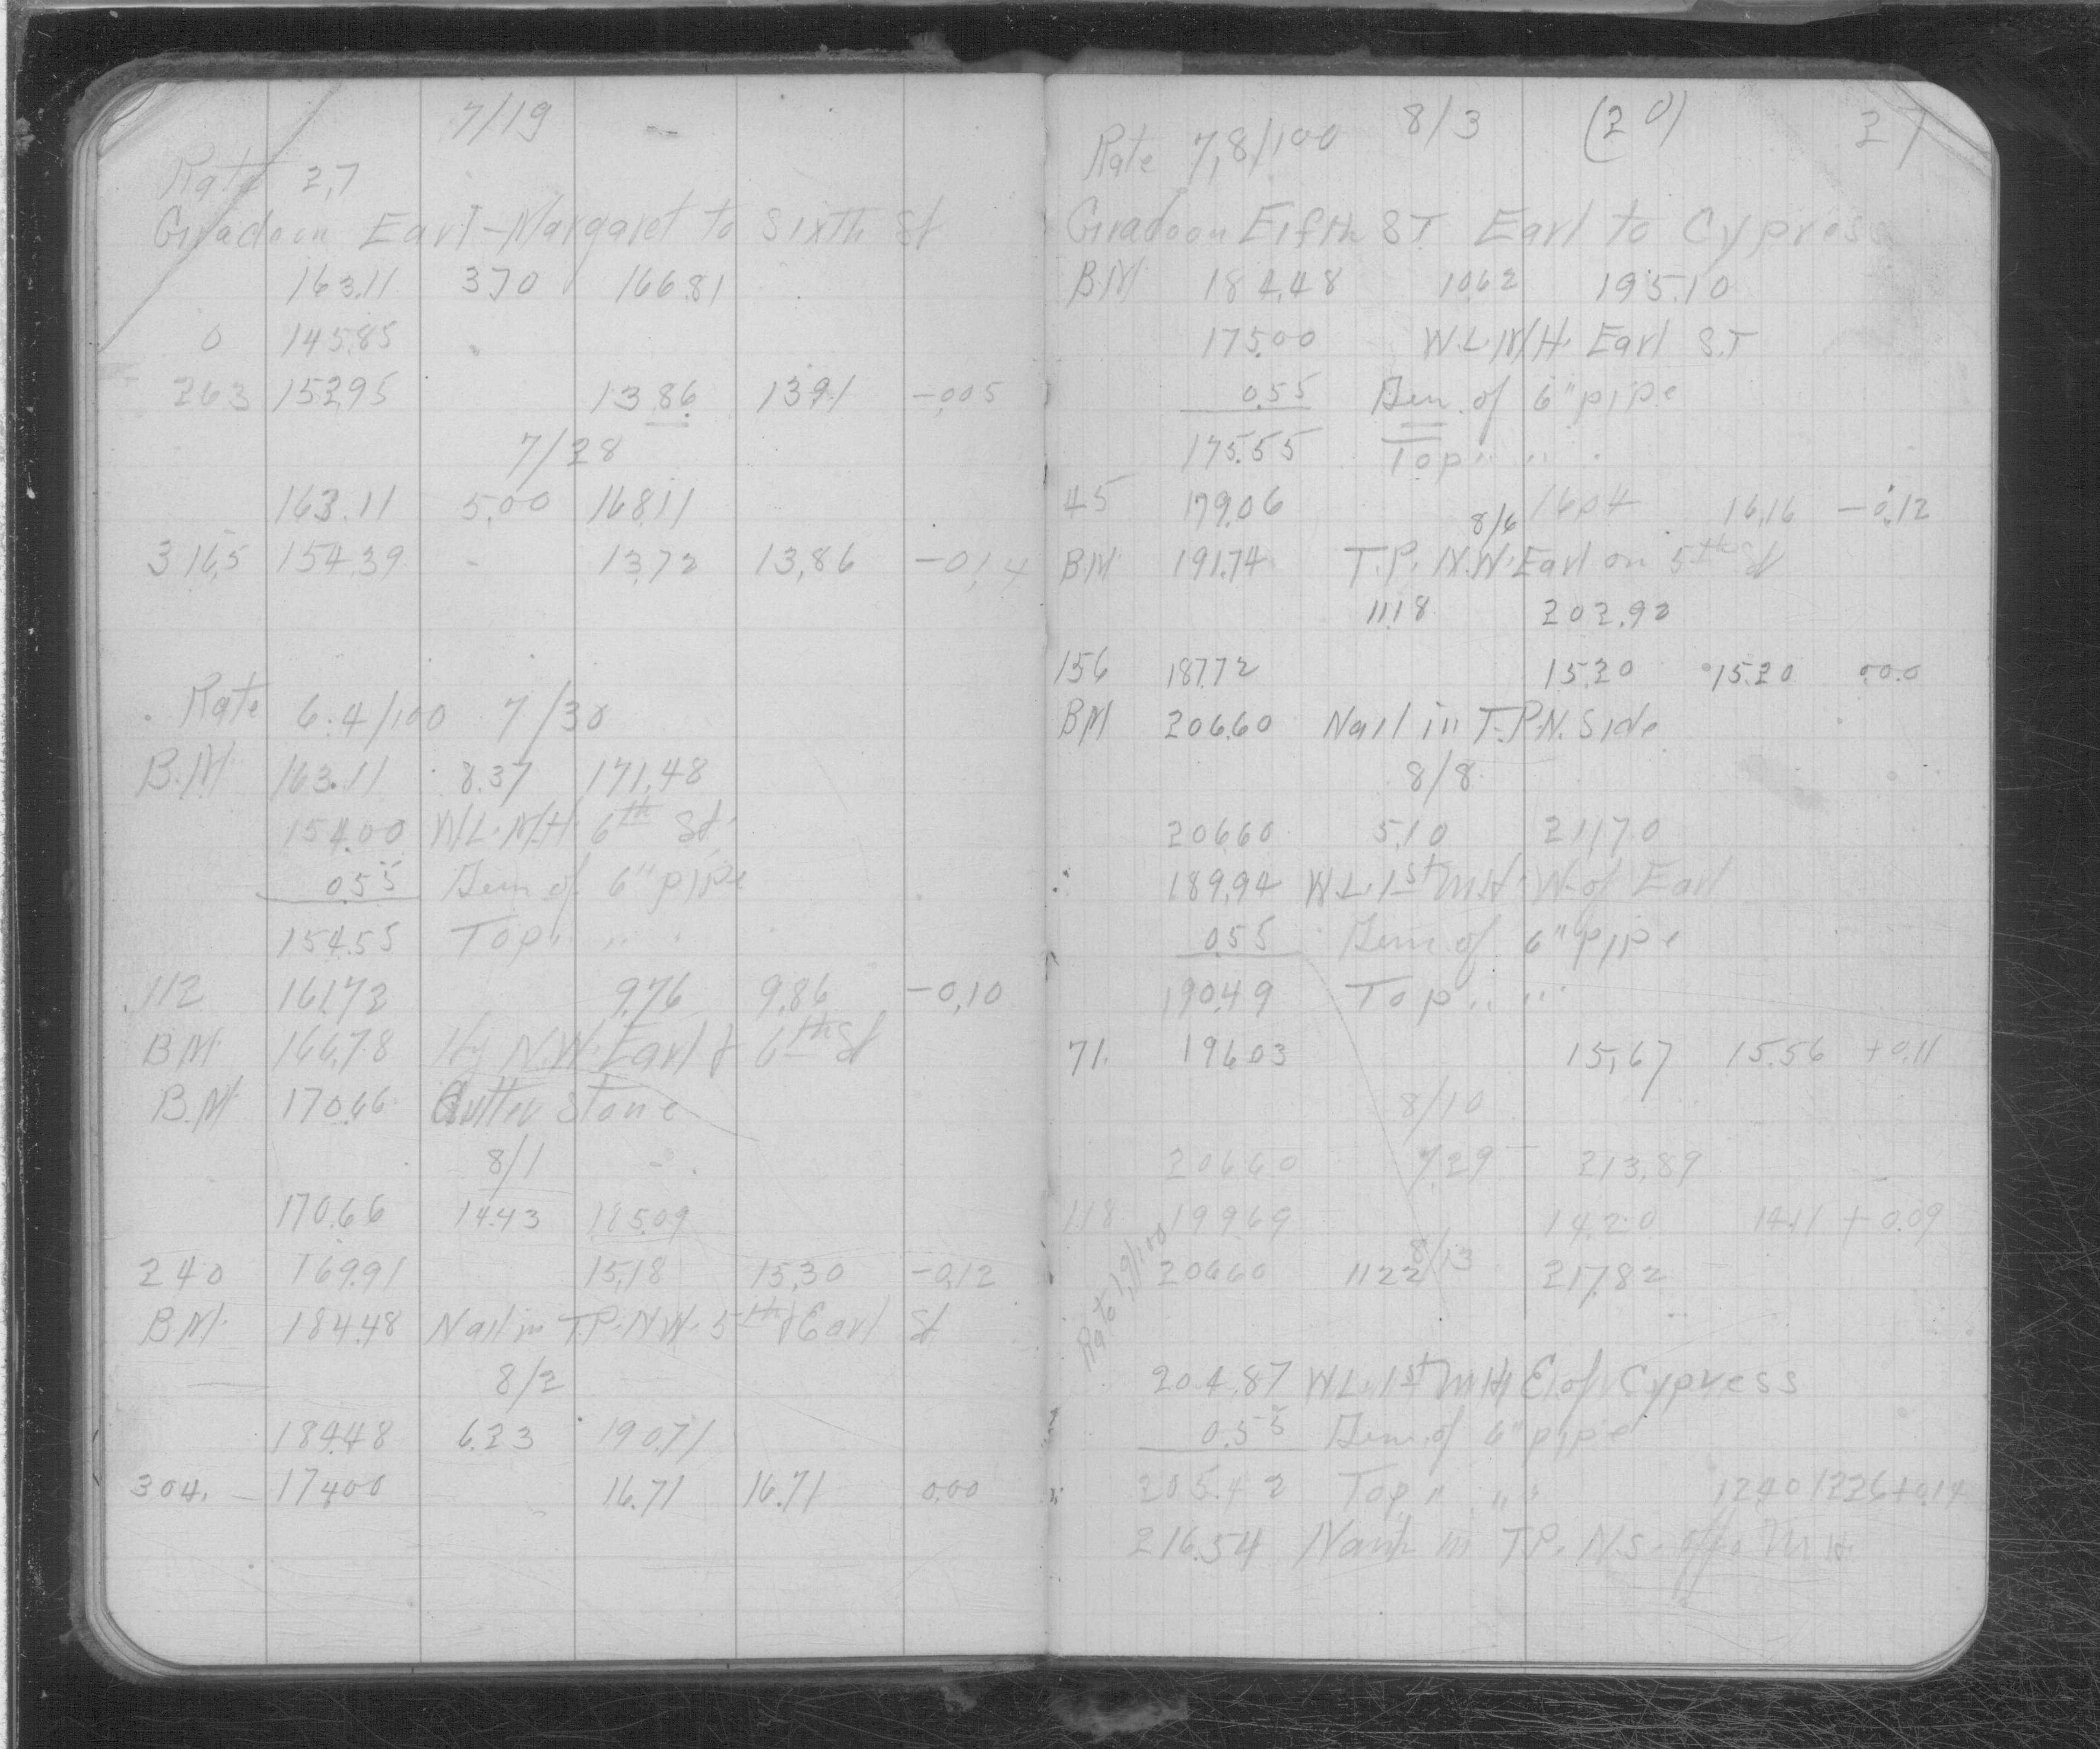 7/19
Rate 2,7
Grade on Earl - Margaret to Sixth St
163.11 370 166.81
0 145.85
263 152.95 13.86 13.91 -0.05
7/28
163.11 5.00 168.11
316.5 154.39 - 13.72 13.86 -0.14
Rate 6.4/100 7/30
B.M. 163.11 8.37 171.48
154.00 W.L. M.H. 6th St.
0.55 Diem of 6" pipe
154.55 Top " "
112 161.72 9.76 9.86 -0.10
B.M. 166.78 Hy N.W. Earl & 6th St
B.M. 170.66 Gutter Stone
8/1
170.66 14.43 185.09
240 169.91 15.18 15.30 -0.12
B.M. 184.48 Nail in T.P. N.W. 5th & Earl St
8/2
184.48 6.23 190.71
304. 174.00 16.71 16.71 0.00
8/3 (20) 21
Rate 7,8/100
Grade on Fifth ST. Earl to Cypress
B.M. 184.48 10.62 195.10
175.00 W.L. M.H. Earl S.T
0.55 Diem. of 6" pipe
175.55 Top " "
45 179.06 16.04 16.16 -0.12
8/6
B.M. 191.74 T.P. N.W. Earl on 5th St
11.18 202.92
156 187.72 15.20 15.20 00.0
B.M 206.60 Nail in T.P. N. Side
8/8
206.60 5.10 211.70
189.94 W.L. 1st M.H. W. of Earl
0.55 Diem. of 6" pipe
190.49 Top " "
71. 196.03 15.67 15.56 +0.11
8/10
206.60 7.29 213.89
118 199.69 14.20 14.11 +0.09
8/13
Rate 1,9/100
206.60 11.22 217.82
204.87 W.L. 1st M.H. E. of Cypress
0.55 Diem. of 6" pipe
205.42 Top " " 12.40 12.26 +0.14
216.54 in T.P. N.S. M.H.